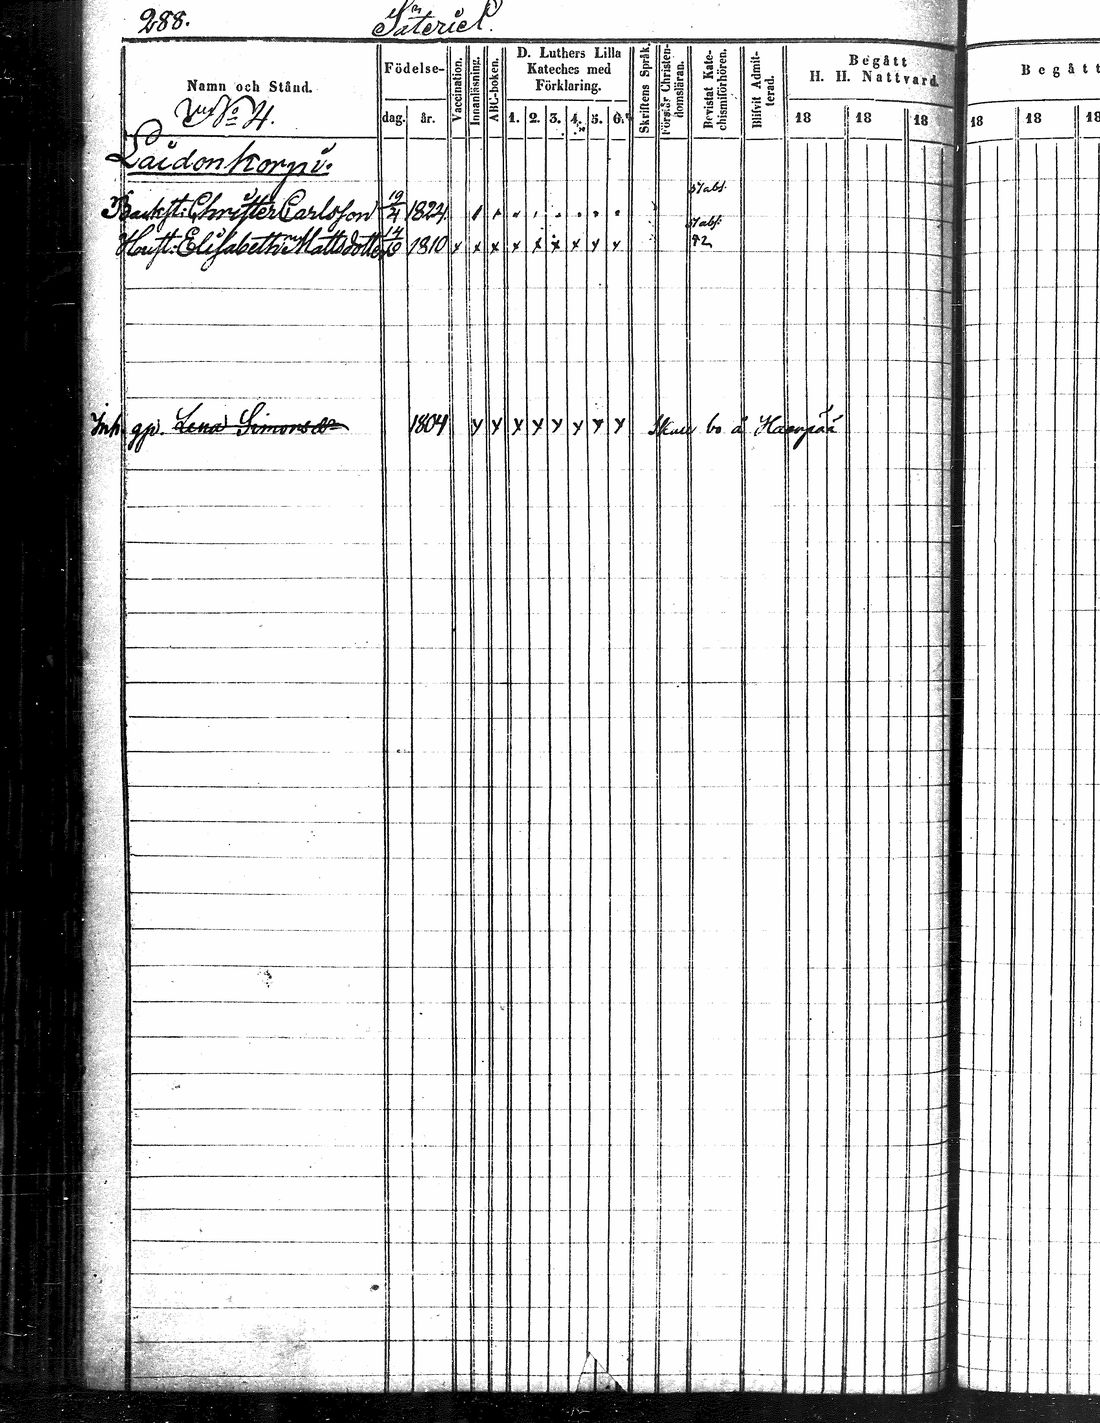 288. Säteriet.
Namn och Stånd.
Födelse-
dag. år.
Vaccination.
Innanläsning.
ABC-boken.
D. Luthers Lilla
Kateches med
Förklaring.
1. 2. 3. 4. 5. 6.
Skriftens Språk.
Förstår Christen-
domsläran.
Bevistat Kate-
chismiförhören.
Blifvit Admit-
terad.
Begått
H. H. Nattvard.
18 18 18
Begått
18 18 18
No 4.
Laidonkorpi.
57 abs:
Backst: Christer Carlsson 19/4 1824
57 abs:
Hust: Elisabeth Mattsdotter 1810 x x x x x x x x x
Inh. gp. Lena Simonsdr 1804 x x x x x x x x Skall bo å